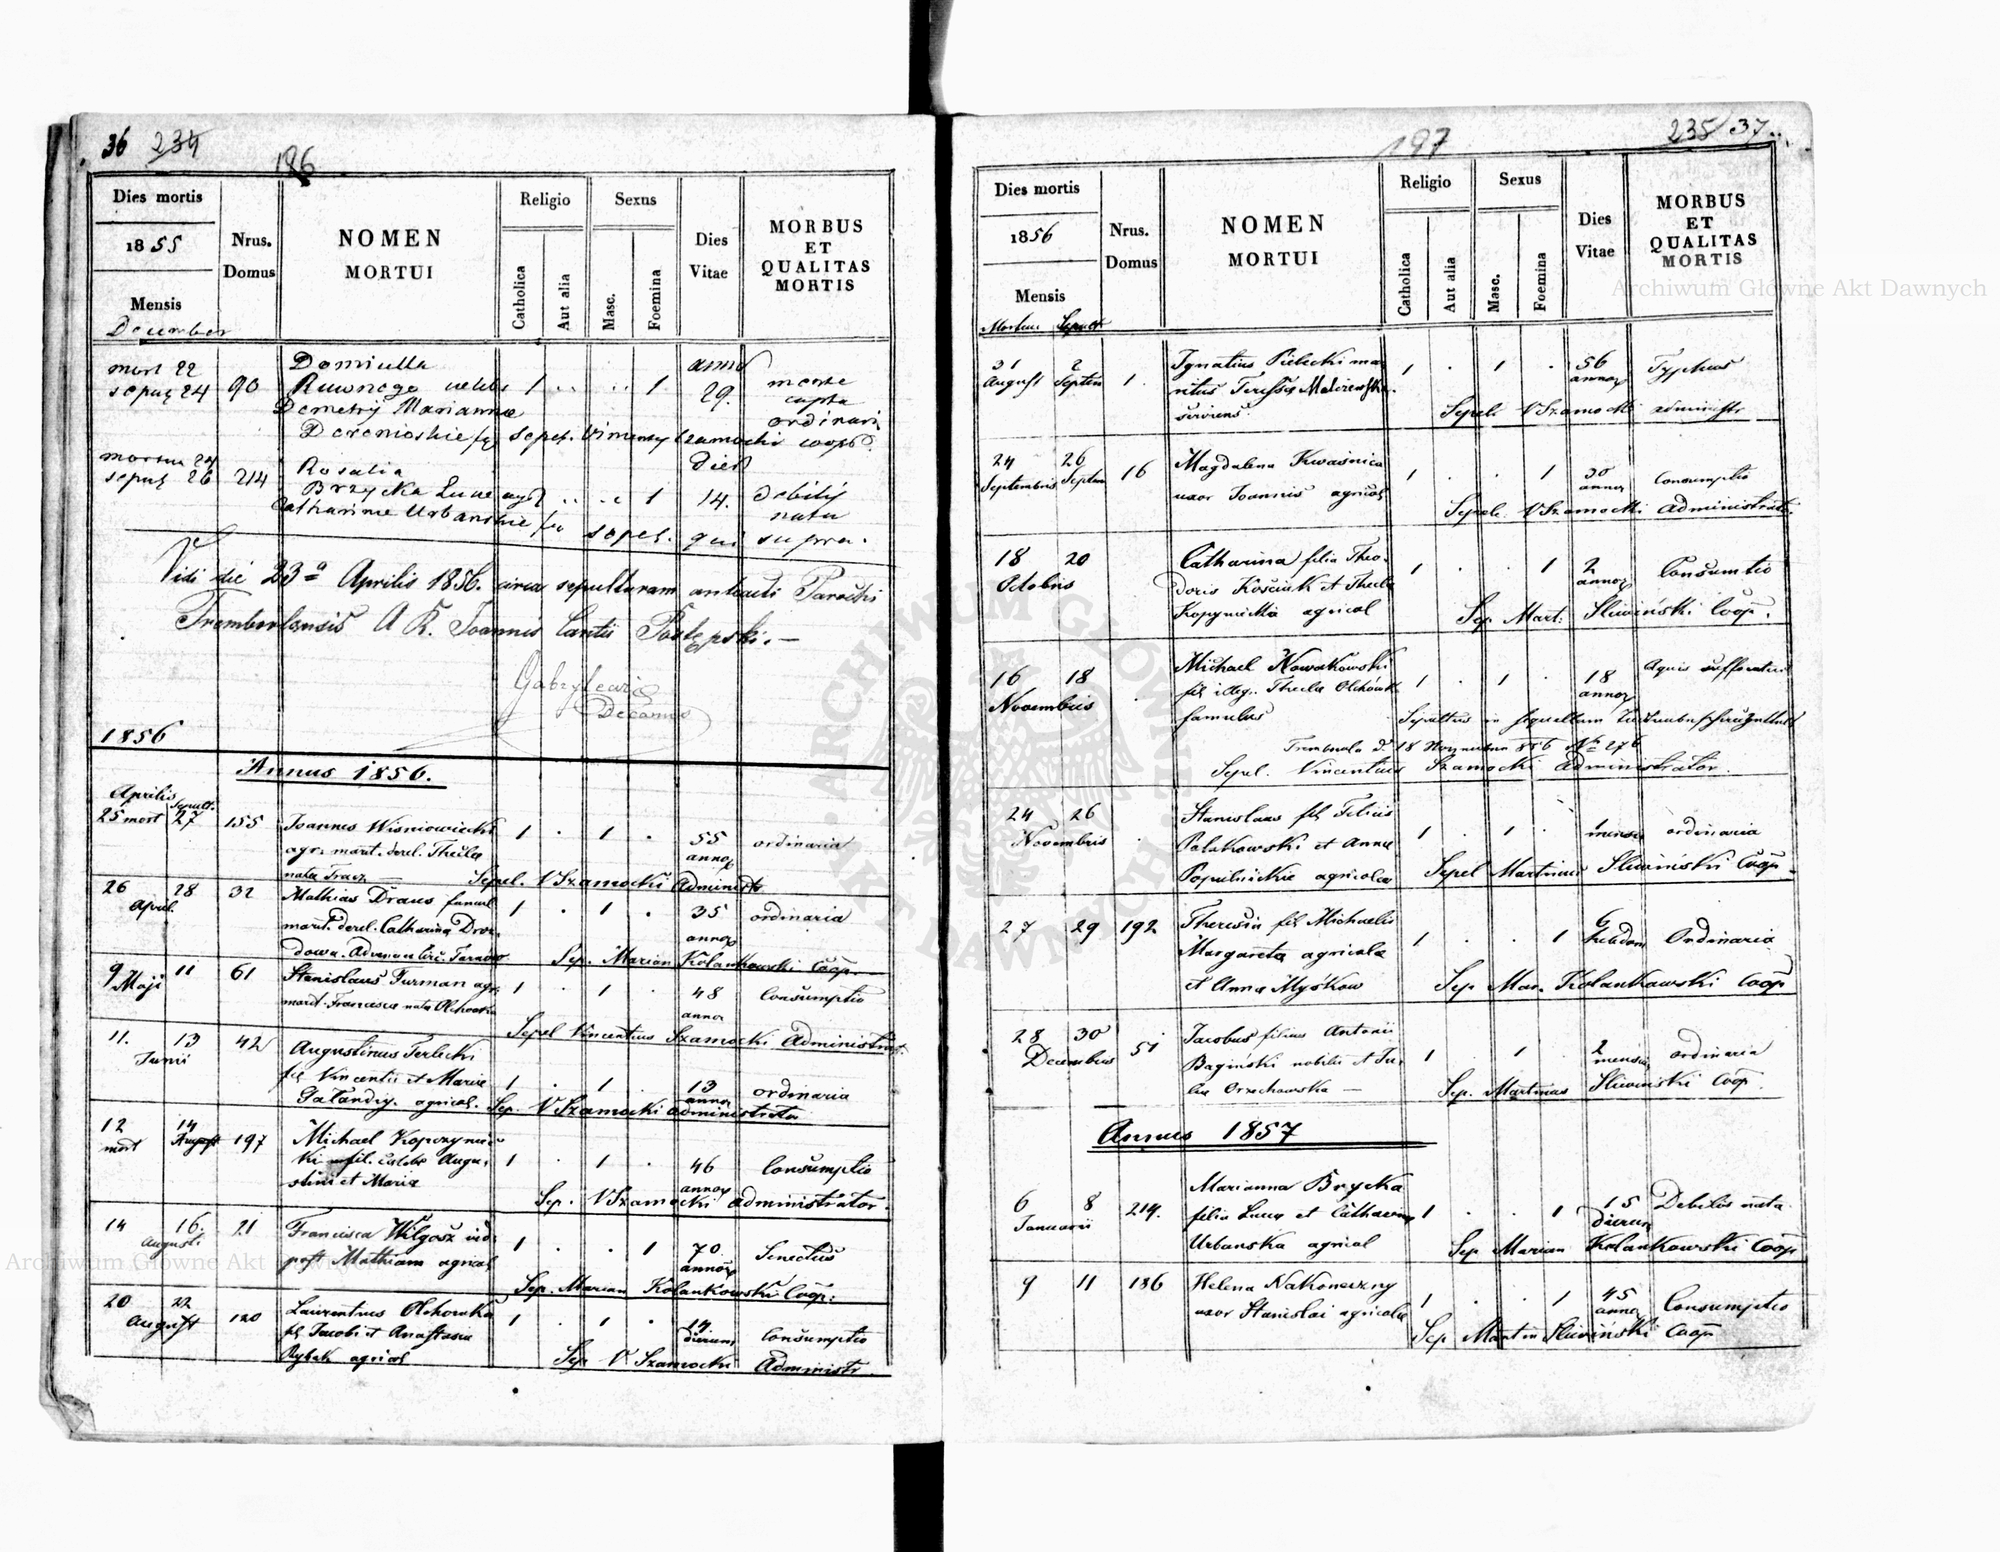 36 234
196
Dies mortis
1855
Mensis
December
Nrus. Domus
NOMEN
MORTUI
Religio
Catholica
Aut alia
Sexus
Masc.
Foemina
Dies
Vitae
MORBUS
ET
QUALITAS
MORTIS
mort 22 Domicella
sepul 24 90 1 .. .. 1 29.
Demetrij Marianna ordinari
sepel.
Rosalia dier
sepul 26 214 Brzycka Luce 1 14. debilis
Catharinae Urbanskie natu
sepel. qui supra.
Vidi die 23a Aprilis 1856. circa sepulturam Parochi
Trembovlensis A R. Joannis Cantii
Decanus
1856
Annus 1856.
Aprilis sepult.
25 mort 27 155 Joannes Wisniowiecki 1 . 1 . 55 ordinaria
agr. marit. derel. Thecla annor
nata Tracz Sepel. V Szamocki Administr
26 28 32 Mathias Draus famul 1 . 1 . 35 ordinaria
April. marit. derel. Catharina annor
Sep. Marian Kolankowski Coop.
9 11 61 Stanislaus Furman agr. 1 . 1 . 48 Consumptio
Maji marit. Francisca nata annor
Sepel Vincentius Szamocki Administrat.
11. 13 42 Augustinus Terlecki
Junii fil Vincentii et Mariae 1 . 1 . 13 ordinaria
agricol. Sep. V Szamocki annor administrator
12 14 197 Michael Kopczyns
mort August ki fil. Augu. 1 . 1 . 46 Consumptio
stini et Maria annor
Sep. V Szamocki administrator.
14 16. 21 Francisca Wilgosz vid 1 . . 1 70. Senectus
Augusti post Mathiam agricol annor
Sep. Marian Kolankowski Coop.
20 22 120 Laurentius Olchowka 1 . 1 . 14
August fil Jacobi et Anastasia dierum Consumptio
Rybak agricol Sep V Szamocki Administr.
197
235/37
Dies mortis
1856
Mensis
Mortui Sepult
Nrus.
Domus
NOMEN
MORTUI
Religio
Catholica
Aut alia
Sexus
Masc.
Foemina
Dies
Vitae
MORBUS
ET
QUALITAS
MORTIS
31 2 Ignatius Pielecki ma 56 Typhus
August Septem 1. ritus 1 . 1 . annor
Sepel. V Szamocki administr
24 26 16 Magdalena Kwaśnica 1 . . 1 30 Consumptio
Septembris Septem uxor Joannis agricol annor
Sepel. V Szamocki Administrat.
18 20 Catharina filia Theo 1 . . 1 2 Consumtio
Octobris doris Kościuk et Thecla annor
Kopynicka agricol Sep Mart. Sliwiński Coop.
16 18 Michael Nowakowski 1 . 1 . 18 Aquis suffocatus
Novembris fil illeg. Thecla annor
famulus Sepultus in
Trembowla d. 18 856 No 276
Sepel. Vincentius Szamocki Administrator.
24 26 Stanislaus fil Felicis 1 . 1 . 1 ordinaria
Novembris et Anna mensis
agricola Sepel Martinus Sliwiński Coop.
27 29 192 Theresia fil Michaelis 6
Margareta agricola 1 . . 1 hebdom Ordinaria
et Anna Myśkow Sep Mar. Kolankowski Coop
28 30 51 Jacobus filius Antonii 1 1 2 ordinaria
Decembris Bagiński nobilis et Ju. mensis
lia Orzechowska — Sep. Martinus Sliwiński Coop.
Annus 1857
Marianna Brycka
6 8 214. filia Luca et Catharina 1 . . 1 15 Debilis nata
Januarii Urbanska agricol dierum
Sep Marian Kolankowski Coop
9 11 186 Helena Nakoneczny 1 . . 1 45 Consumptio
uxor Stanislai agricola annor
Sep Martin Sliwiński Coop
Archiwum Główne Akt Dawnych
Archiwum Główne Akt Dawnych
ARCHIWUM GŁÓWNE AKT DAWNYCH